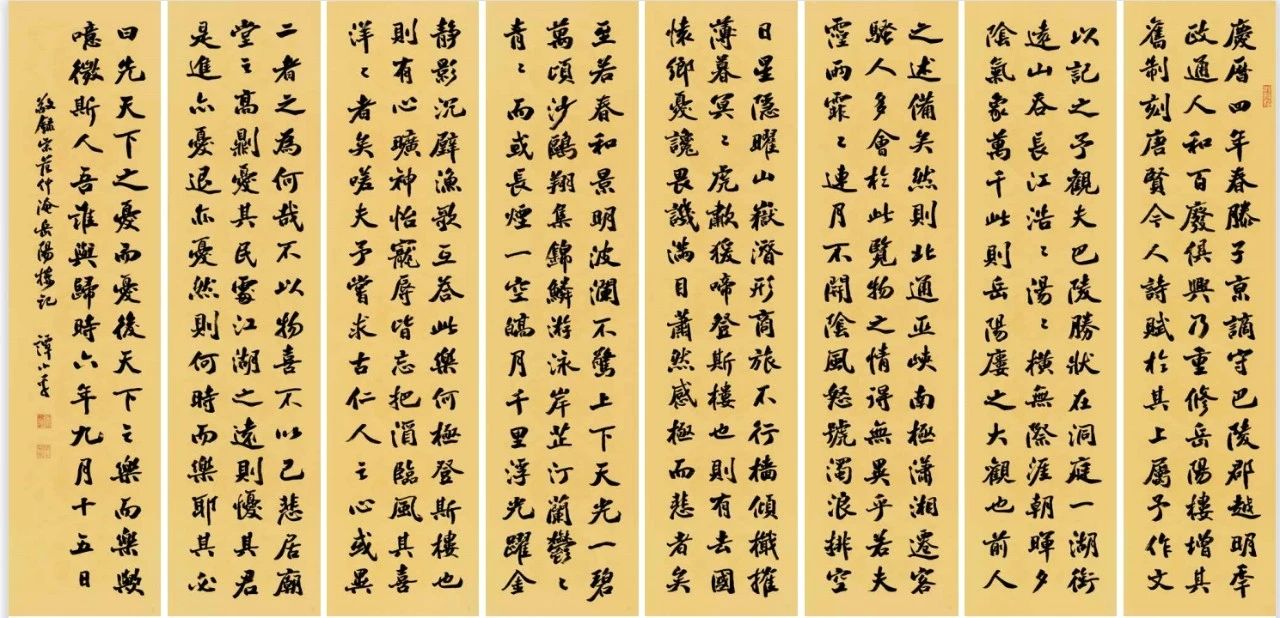 慶曆四年春滕子京謫守巴陵郡越明年
政通人和百廢俱興乃重修岳陽樓增其
舊制刻唐賢今人詩賦於其上屬予作文
以記之予觀夫巴陵勝狀在洞庭一湖銜
遠山吞長江浩〻湯〻橫無際涯朝暉夕
陰氣象萬千此則岳陽樓之大觀也前人
之述備矣然則北通巫峽南極瀟湘遷客
騷人多會於此覽物之情得無異乎若夫
霪雨霏〻連月不開陰風怒號濁浪排空
日星隱曜山嶽潛形商旅不行檣傾檝摧
薄暮冥〻虎嘯猿啼登斯樓也則有去國
懷鄉憂讒畏譏滿目蕭然感極而悲者矣
至若春和景明波瀾不驚上下天光一碧
萬頃沙鷗翔集錦鱗游泳岸芷汀蘭鬱〻
青〻而或長煙一空皓月千里浮光躍金
靜影沉璧漁歌互答此樂何極登斯樓也
則有心曠神怡寵辱皆忘把酒臨風其喜
洋〻者矣嗟夫予嘗求古仁人之心或異
二者之為何哉不以物喜不以己悲居廟
堂之高則憂其民處江湖之遠則憂其君
是進亦憂退亦憂然則何時而樂耶其必
曰先天下之憂而憂後天下之樂而樂歟
噫微斯人吾誰與歸時六年九月十五日
敬錄宋范仲淹岳陽樓記 譚小